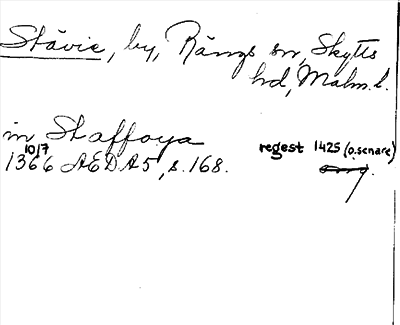 Stävie, by, Rängs sn, Skytts
hd, Malm. l.
in Staffoya
10/7
1366 ÆDA5, s. 168. regest 1425 (o.senare)